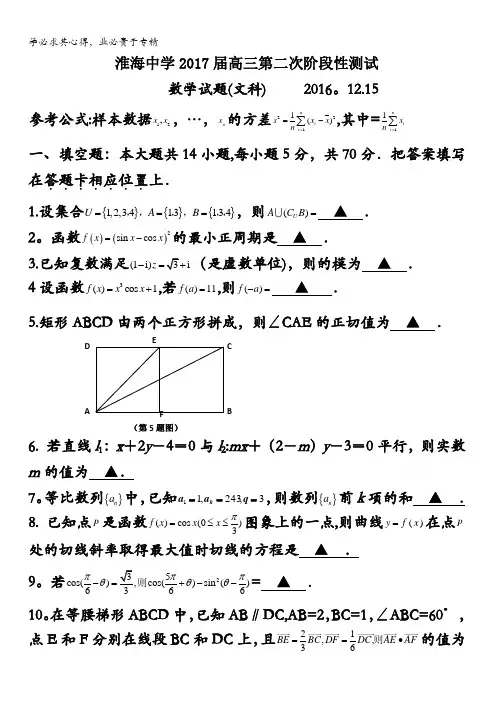 学必求其心得，业必贵于专精
淮海中学2017届高三第二次阶段性测试
数学试题(文科) 2016。12.15
参考公式:样本数据x₁,x₂，…，xₙ的方差s²=1/n∑ᵢ₌₁ⁿ(xᵢ-x̄)²,其中=1/n∑ᵢ₌₁ⁿxᵢ
一、填空题：本大题共14小题,每小题5分，共70分．把答案填写
在答题卡相应位置上．
1.设集合U={1,2,3,4}，A={1,3}，B={1,3,4}，则A∪(C_U B)= ▲ ．
2。函数f(x)=(sin x-cos x)²的最小正周期是 ▲ ．
3.已知复数满足(1-i)z=√3+i（是虚数单位)，则的模为 ▲ ．
4设函数f(x)=x³cos x+1,若f(a)=11,则f(-a)= ▲ ．
5.矩形ABCD由两个正方形拼成，则∠CAE的正切值为 ▲ ．
D E C
A F B
（第5题图）
6. 若直线l₁：x＋2y－4＝0与l₂:mx＋（2－m）y－3＝0平行，则实数
m的值为 ▲．
7。等比数列{aₙ}中，已知a₁=1,aₖ=243,q=3，则数列{aₙ}前k项的和 ▲ ．
8. 已知点P是函数f(x)=cos x(0≤x≤π/3)图象上的一点,则曲线y=f(x)在点P
处的切线斜率取得最大值时切线的方程是 ▲ ．
9。若cos(π/6-θ)=√3/3,则cos(5π/6+θ)-sin²(θ-π/6)= ▲ ．
10。在等腰梯形ABCD中，已知AB∥DC,AB=2,BC=1,∠ABC=60°，
点E和F分别在线段BC和DC上，且BE=2/3BC,DF=1/6DC,则AE•AF的值为